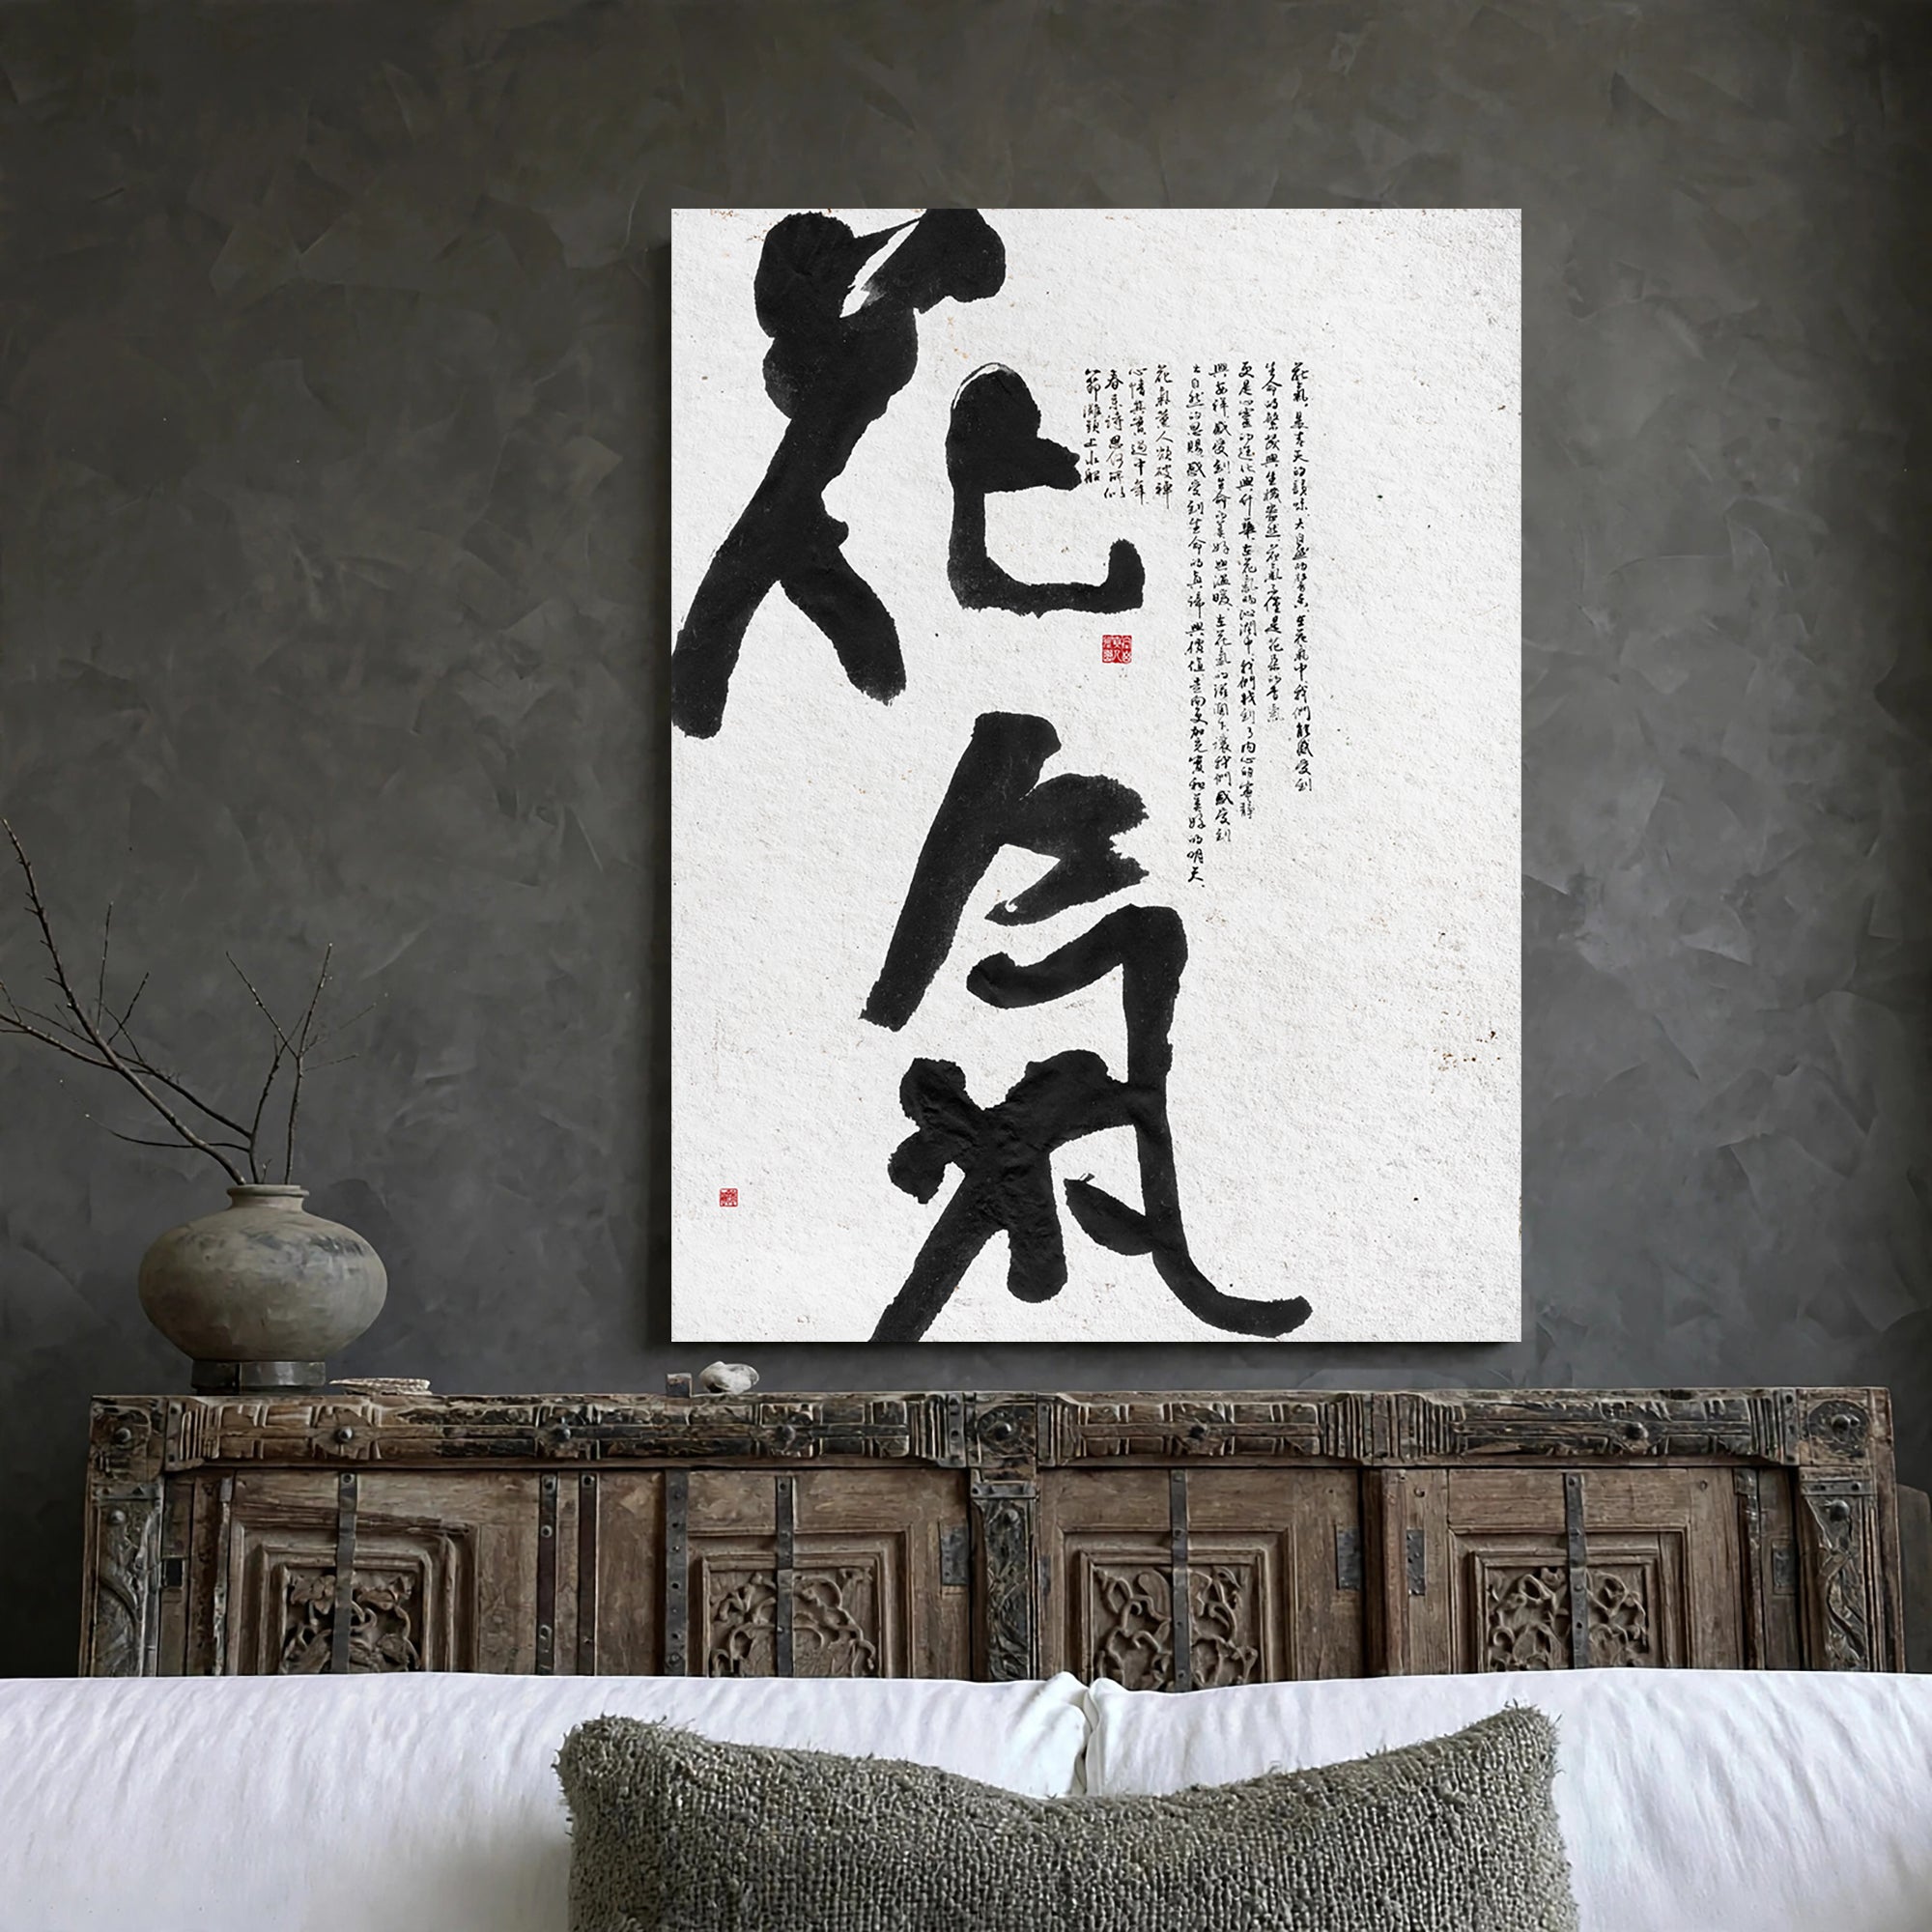 花氣
花氣，是春天的韻味，大自然的馨香，在花氣中我們能感受到
生命的繁茂與生機盎然，花氣不僅是花朵的香氣
更是心靈的進化與升華，在花氣的沁潤中，我們找到了內心的寧靜
與安詳，感受到生命的美好與溫暖，在花氣的滋潤下，讓我們感受到
大自然的恩賜，感受到生命的真諦與價值，走向更加充實和美好的明天，
花氣薰人欲破禪
心情其實過中年
春來詩思何所似
八節灘頭上水船